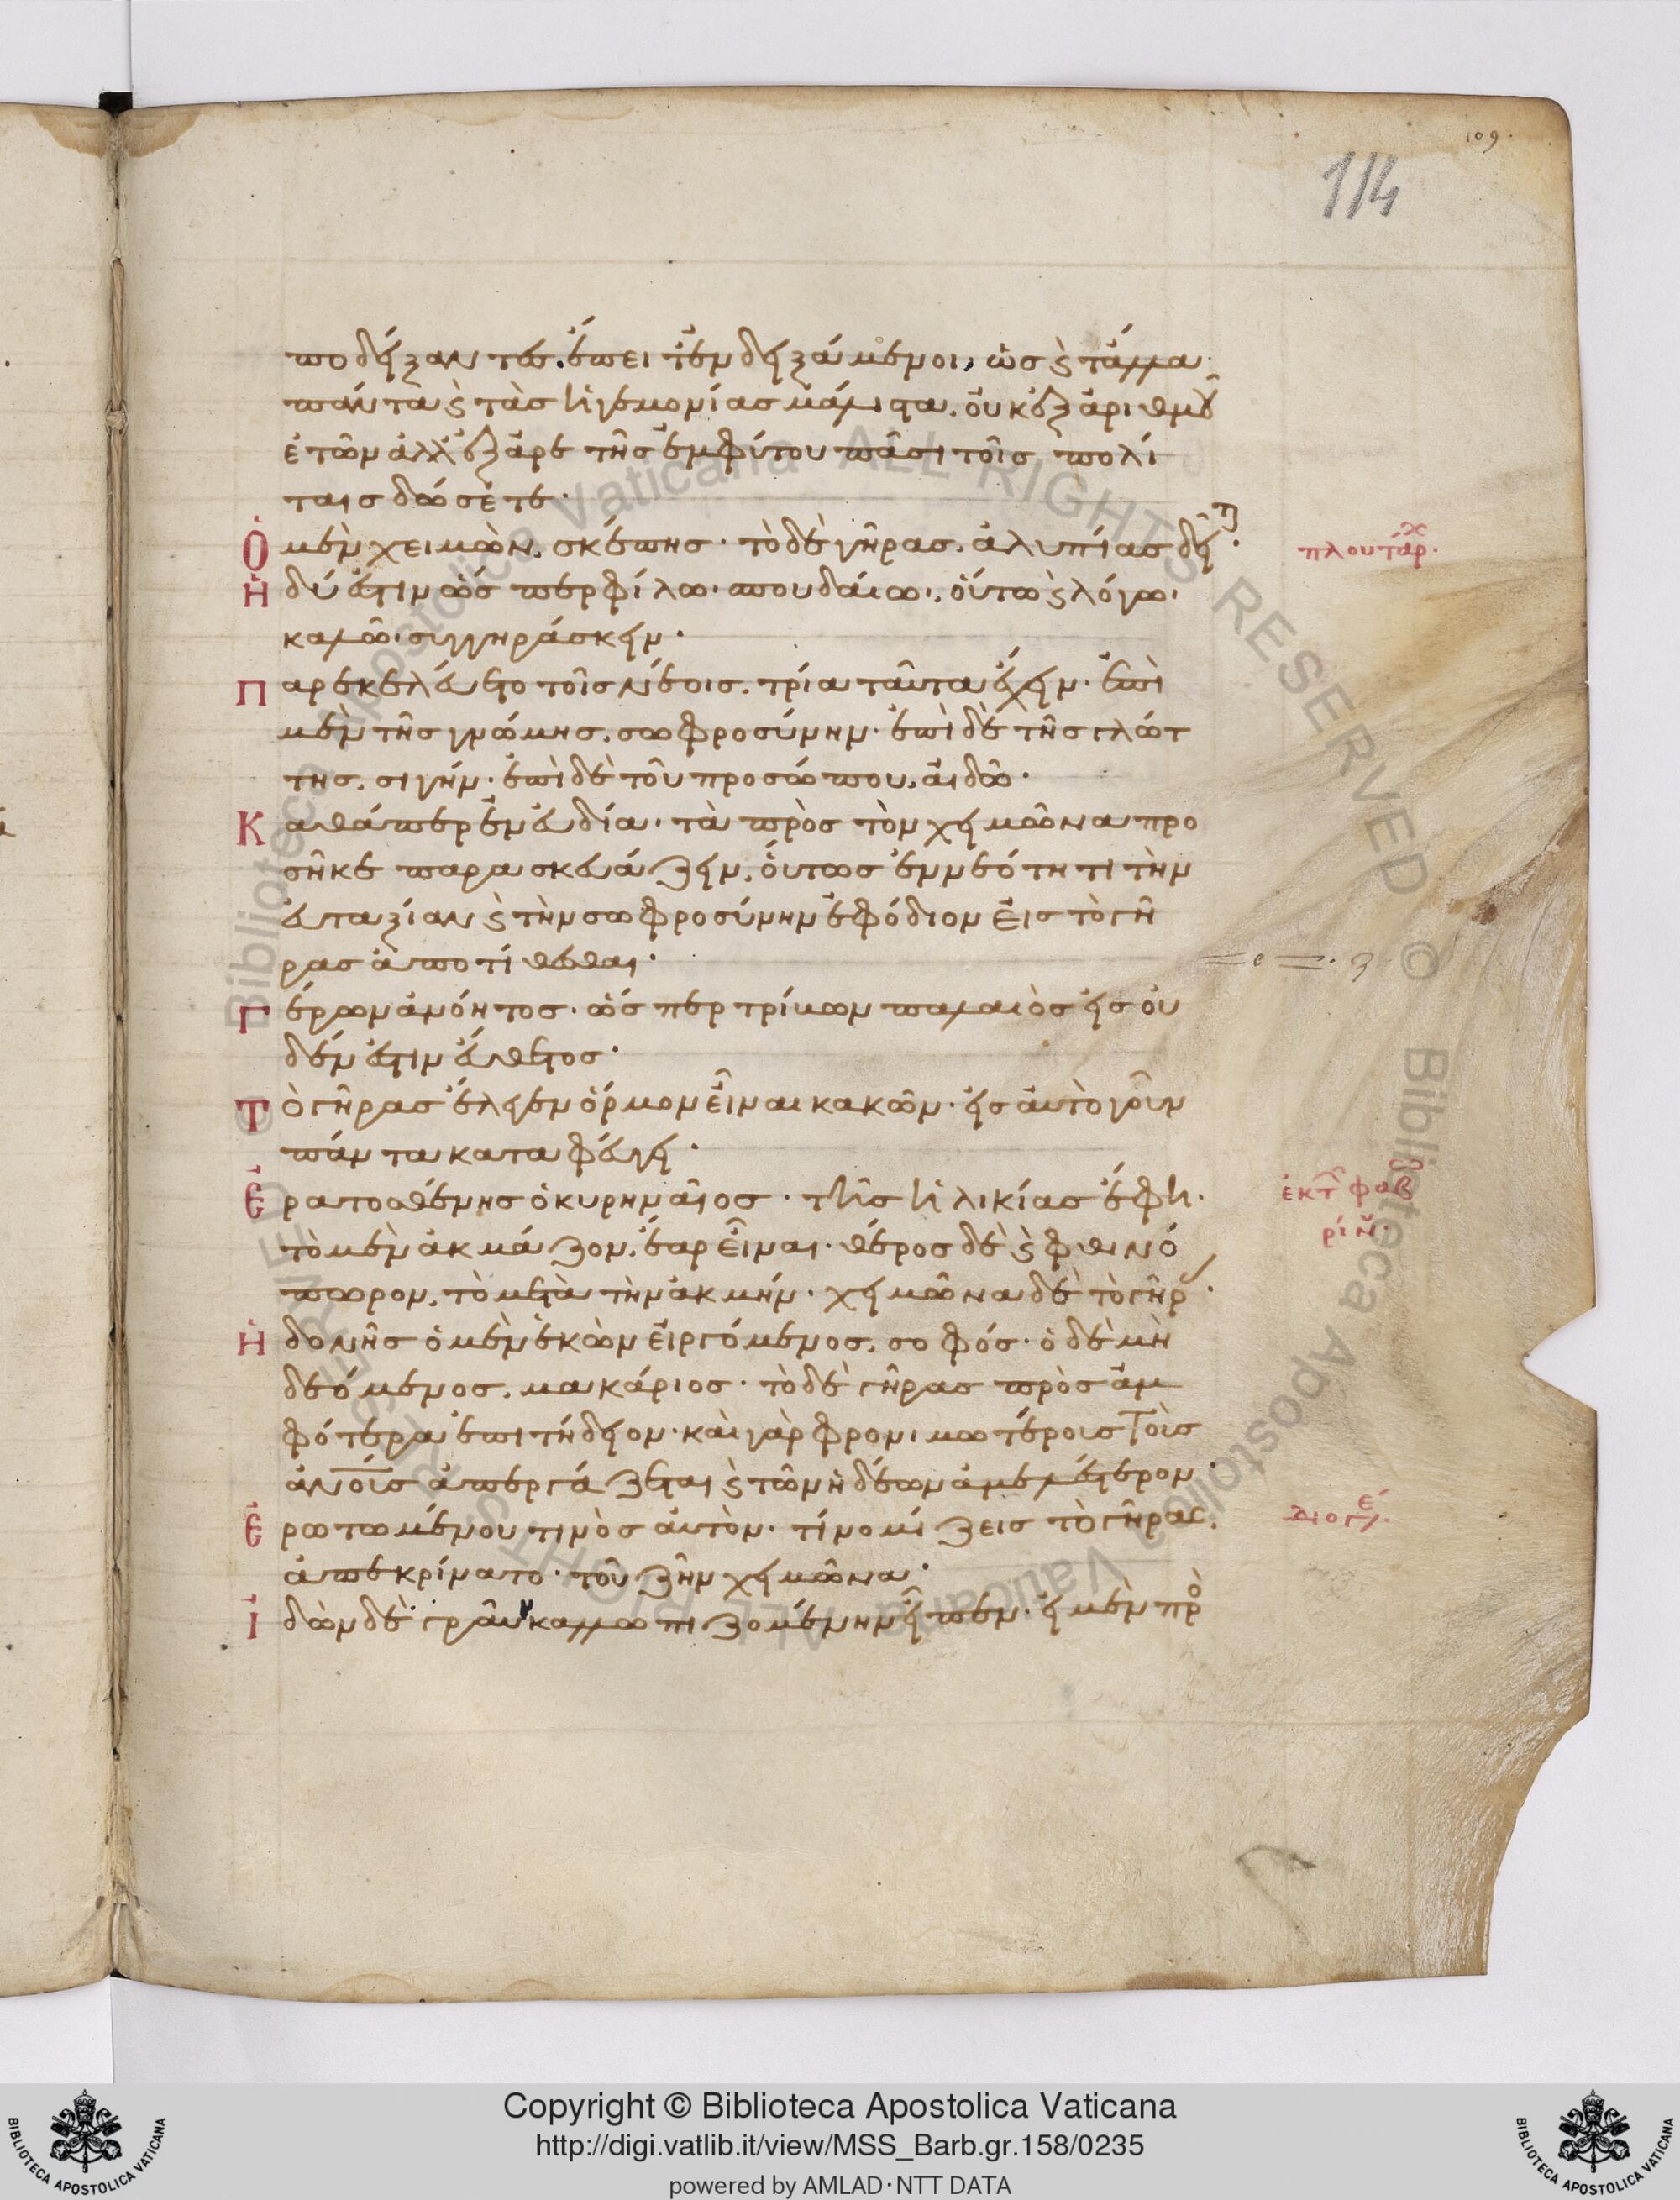 109.
114
ποδείξαντες. ἔπει τ' ἐνδειξάμενοι, ὡς ϛ τἄλλα
πάντα ϛ τὰς ἡγεμονίας μάλιστα. οὐκ ἐξ ἀριθμοῦ
ἐτῶν ἀλλ' ἐξ ἀρετῆς ἐμφύτου πᾶσι τοῖς πολί
ταις δώσετε.
Ὁ μὲν χειμὼν. σκέπης. τὸ δὲ γῆρας. ἀλυπίας δεῖτ.
πλουτάρχ.
Ἡδύ ἐστιν ὥσπερ φίλω. σπουδάιω. οὕτω ϛ λόγω.
καλῶ. συγγηράσκειν.
Παρεκελεύετο τοῖς νέοις. τρία ταῦτα ἔχειν. ἐπὶ
μὲν τῆς γνώμης. σωφροσύνην. ἐπὶ δὲ τῆς γλώτ
της. σιγήν. ἐπὶ δὲ τοῦ προσώπου. αἰδῶ.
Καθάπερ ἐν εὐδία. τὰ πρὸς τὸν χειμῶνα προ
σῆκε παρασκευάζειν. οὕτως ἐν νεότητι τὴν
εὐταξίαν ϛ τὴν σωφροσύνην ἐφόδιον εἰς τὸ γῆ
ρας ἀποτίθεσθαι.
Γέρων ἀνόητος. ὥσπερ τρίβων παλαιὸς εἰς οὐ
δέν ἐστιν εὔθετος.
Τὸ γῆρας ἔλεγεν ὅρμον εἶναι κακῶν. εἰς αὐτὸ γοῦν
πάντα καταφεύγει.
Ἐρατοσθένης ὁ κυρηναῖος. τῆς ἡλικίας ἔφη.
ἐκτ φαβ
ρίν.
τὸ μὲν ἀκμάζον. ἔαρ εἶναι. θέρος δὲ ϛ φθινό
πωρον. τὸ μετὰ τὴν ἀκμήν. χειμῶνα δὲ τὸ γῆρ.
Ἡδονῆς ὁ μὲν ἑκὼν εἰργόμενος. σοφός. ὁ δὲ μὴ
δεόμενος. μακάριος. τὸ δὲ γῆρας πρὸς ἀμ
φότερα ἐπιτήδειον. καὶ γὰρ φρονιμωτέροις τοὺς
ἀνοις ἀπεργάζεται ϛ τῶν ἡδέων ἀμελέστερον.
Ἐρωτωμένου τινὸς αὐτὸν. τί νομίζεις τὸ γῆρας.
διογέ.
ἀπεκρίνατο. τοῦ ζῆν χειμῶνα.
Ἰδὼν δὲ γραῦν καλλωπιζομένην εἶπεν. εἰ μὲν πρὸ
Copyright © Biblioteca Apostolica Vaticana
http://digi.vatlib.it/view/MSS_Barb.gr.158/0235
powered by AMLAD·NTT DATA